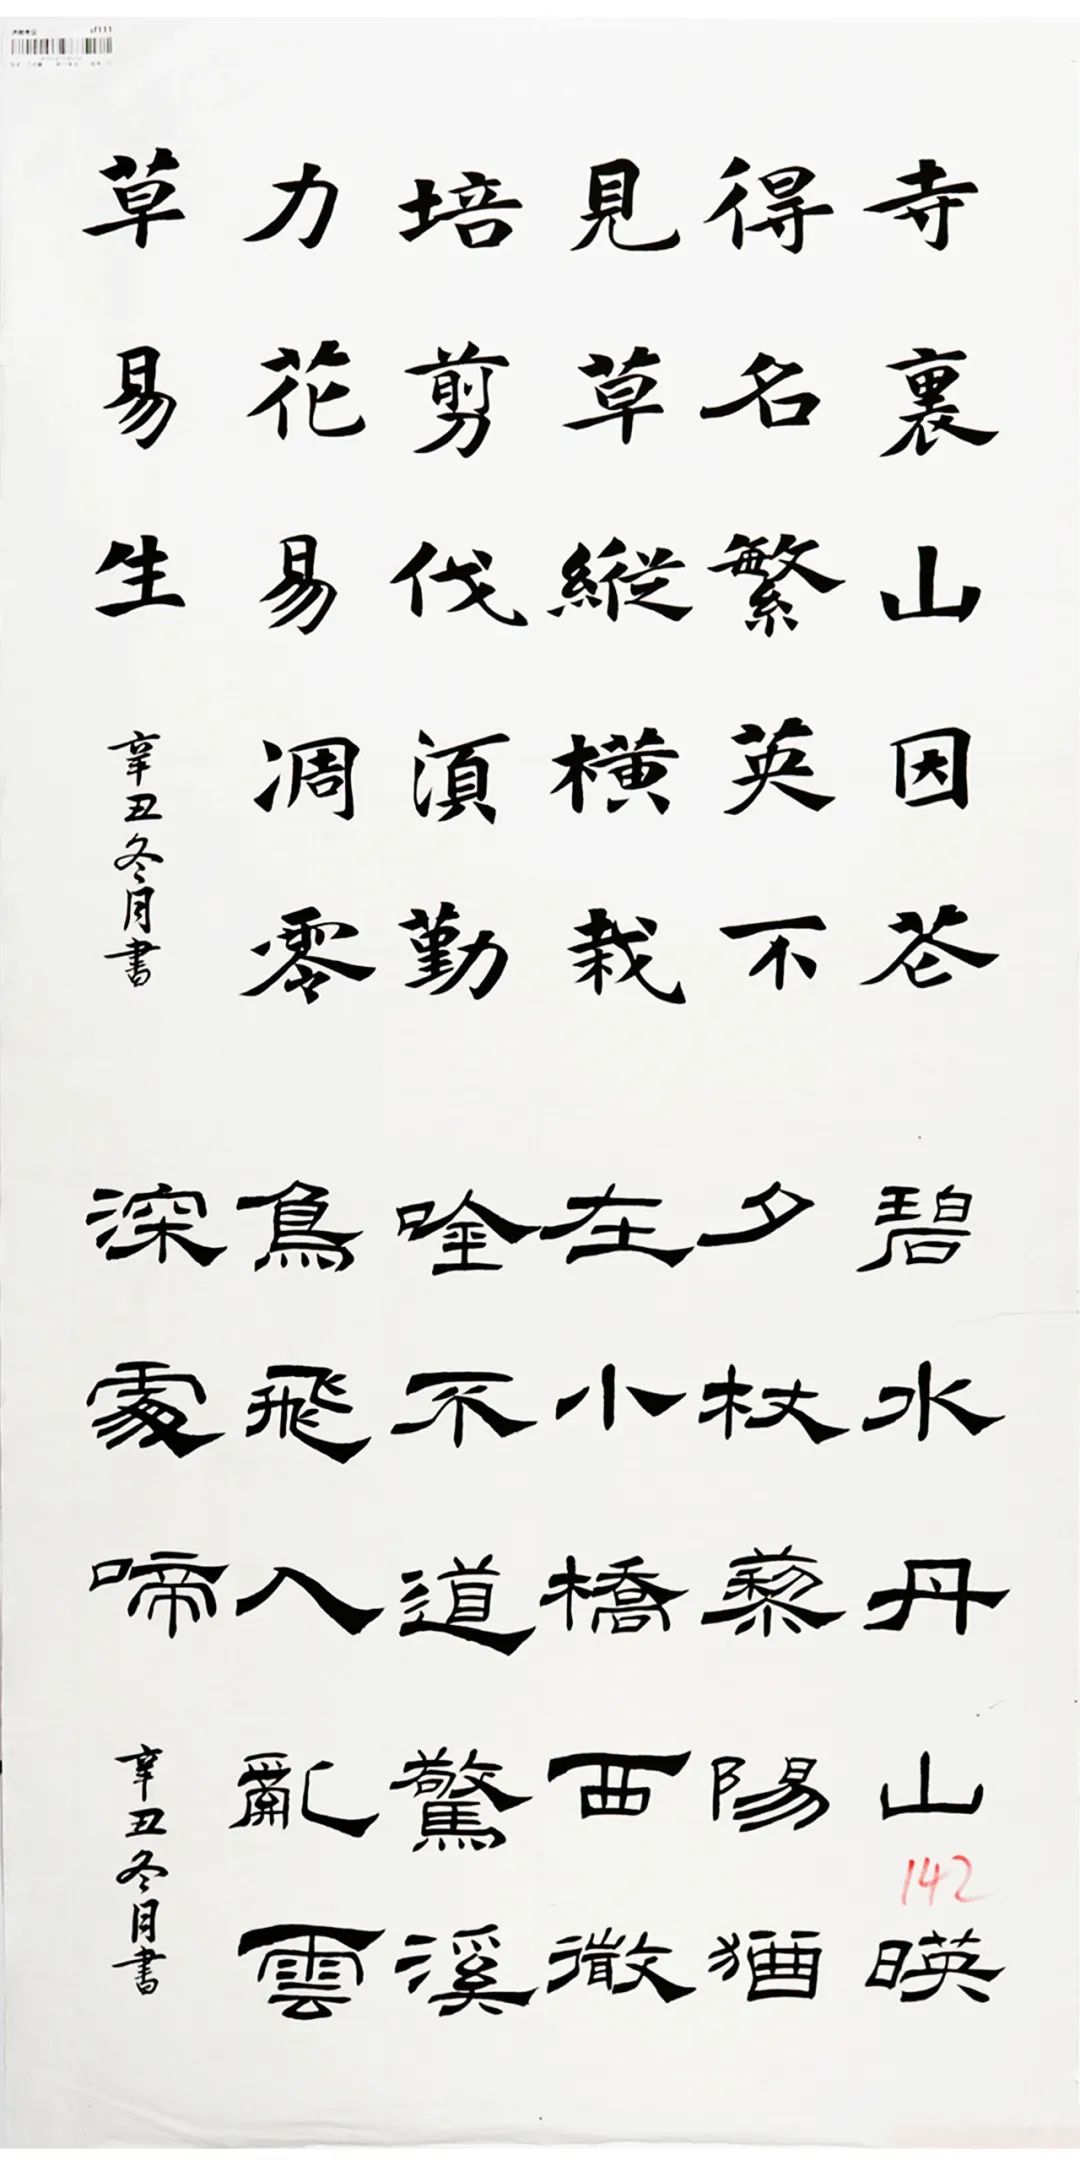 寺裏山因花
得名繁英不
見草縱橫栽
培剪伐須勤
力花易凋零
草易生
辛丑冬月書
碧水丹山暎
杖藜
夕陽猶
在小橋西微
吟不道驚溪
鳥飛入亂雲
深處啼
辛丑冬月書
142